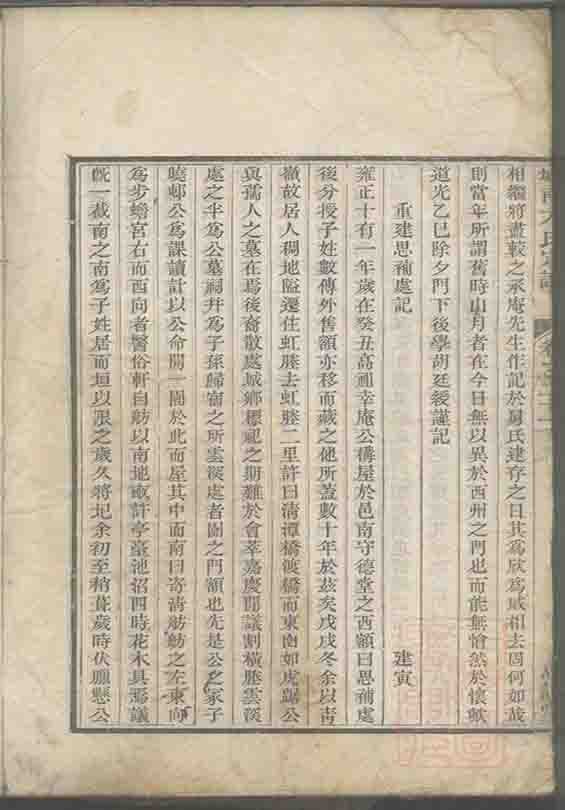 相繼將盡較之丞庵先生作記於房氏建存之日其為欣為慼相去固何如哉
則當年所謂舊時山月者在今日無以異於西州之門也而能無愴然於懷歟
道光乙巳除夕門下後學胡廷綬謹記
重建思補處記 建寅
雍正十有一年歲在癸丑高祖幸庵公構屋於邑南守德堂之西額曰思補處
後分授子姓數傳外舊額亦移而藏之他所蓋數十年於茲矣戊戌冬余以青
嶽故居人稠地隘遷住虹滕去虹滕二里許曰清潭橋渡橋而東南如虎踞公
與孺人之墓在焉後裔散處城鄉標祀之期難於會萃嘉慶間議割橫塍雲溪
處之半為公墓祠并為子孫歸宿之所雲溪處者園之門額也先是公之冢子
曉邨公為課讀計以公命開一園於此而屋其中而南曰寄舫舫之左東向
為步蟾宮右而西向者醫俗軒自舫以南地畝許亭臺池沼四時花木具焉議
既一截南之南為子姓居而垣以限之歲久將圮余初至稍葺歲時伏願懸公